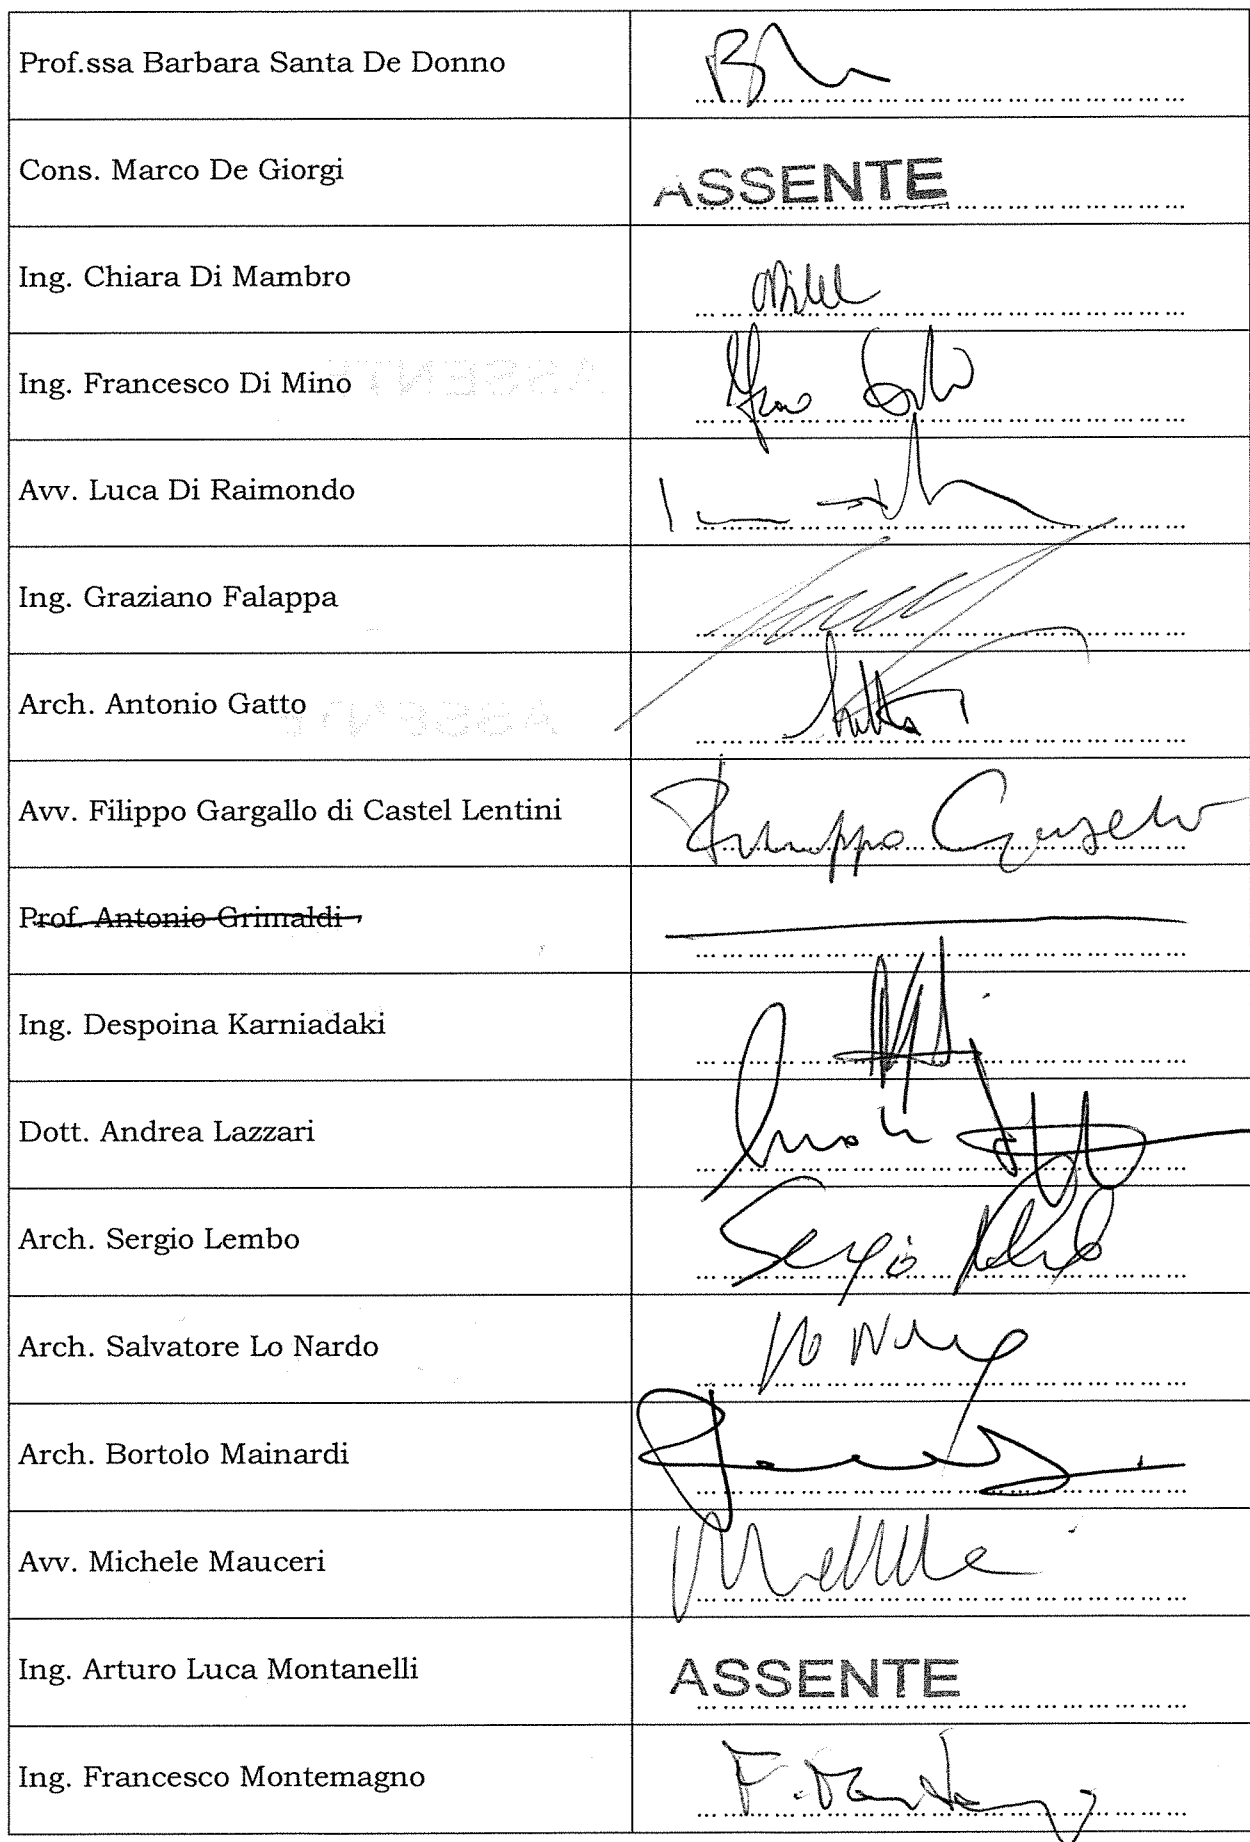 Prof.ssa Barbara Santa De Donno
Cons. Marco De Giorgi ASSENTE
Ing. Chiara Di Mambro
Ing. Francesco Di Mino
Avv. Luca Di Raimondo
Ing. Graziano Falappa
Arch. Antonio Gatto
Avv. Filippo Gargallo di Castel Lentini Filippo
Prof. Antonio Grimaldi
Ing. Despoina Karniadaki
Dott. Andrea Lazzari
Arch. Sergio Lembo Sergio
Arch. Salvatore Lo Nardo
Arch. Bortolo Mainardi
Avv. Michele Mauceri
Ing. Arturo Luca Montanelli ASSENTE
Ing. Francesco Montemagno